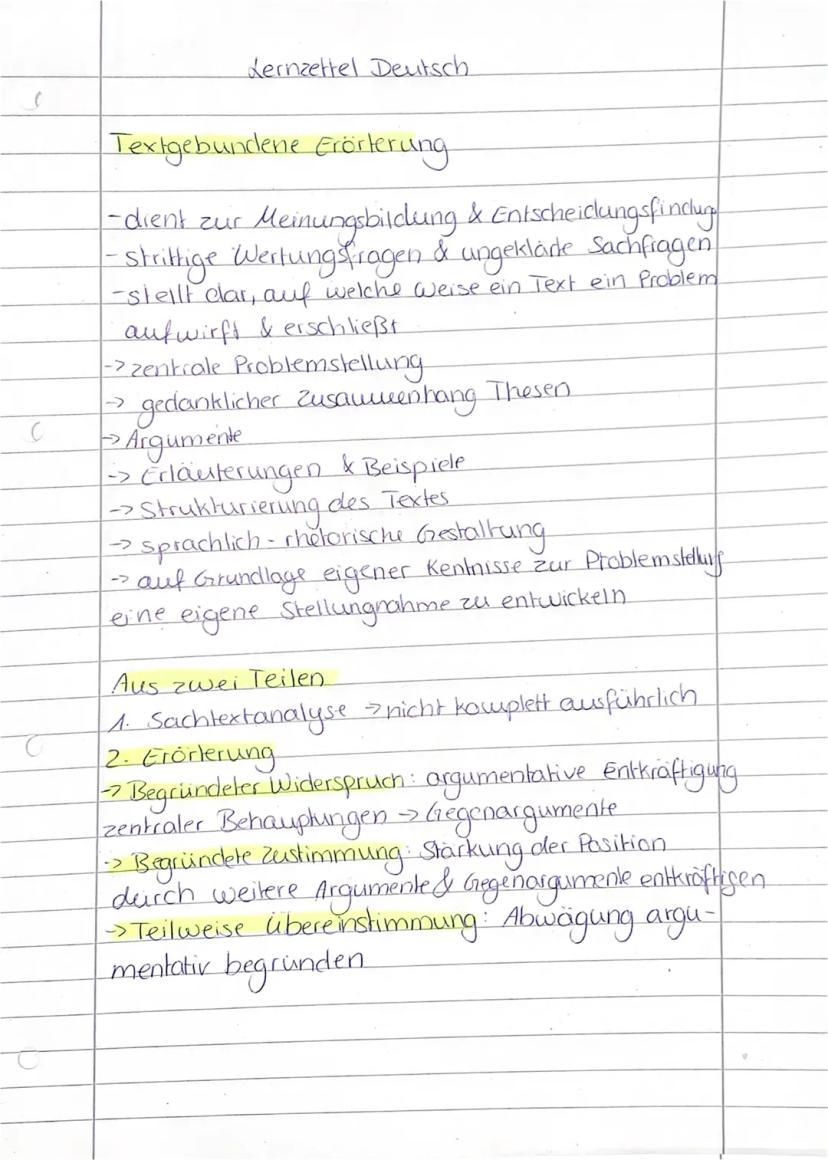 Lernzettel Deutsch
Textgebundene Erörterung
- dient zur Meinungsbildung & Entscheidungsfindung
- strittige Wertungsfragen & ungeklärte Sachfragen
- stellt dar, auf welche Weise ein Text ein Problem
aufwirft & erschließt
-> zentrale Problemstellung
-> gedanklicher Zusammenhang Thesen
-> Argumente
-> Erläuterungen & Beispiele
-> Strukturierung des Textes
-> sprachlich-rhetorische Gestaltung
-> auf Grundlage eigener Kentnisse zur Problemstellung
eine eigene Stellungnahme zu entwickeln
Aus zwei Teilen
1. Sachtextanalyse -> nicht komplett ausführlich
2. Erörterung
-> Begründeter Widerspruch: argumentative Entkräftigung
zentraler Behauptungen -> Gegenargumente
-> Begründete Zustimmung: Stärkung der Position
durch weitere Argumente & Gegenargumente entkräftigen
-> Teilweise Übereinstimmung: Abwägung argu-
mentativ begründen